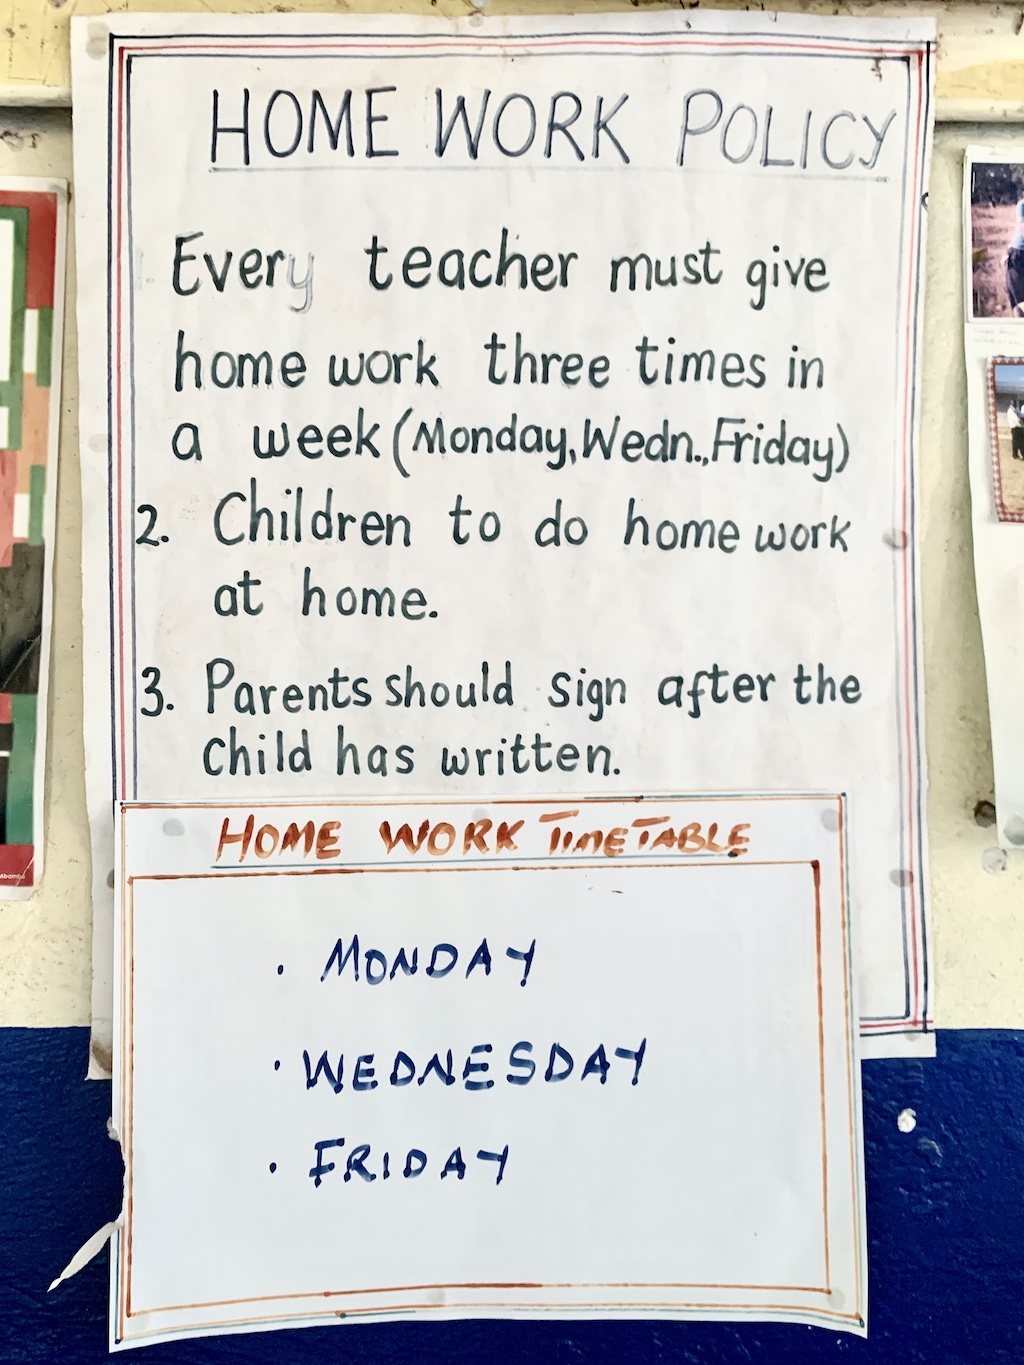 HOME WORK POLICY
1. Every teacher must give
home work three times in
a week (Monday, Wedn., Friday)
2. Children to do home work
at home.
3. Parents should sign after the
child has written.
HOME WORK TIMETABLE
. MONDAY
. WEDNESDAY
. FRIDAY
Mbamba